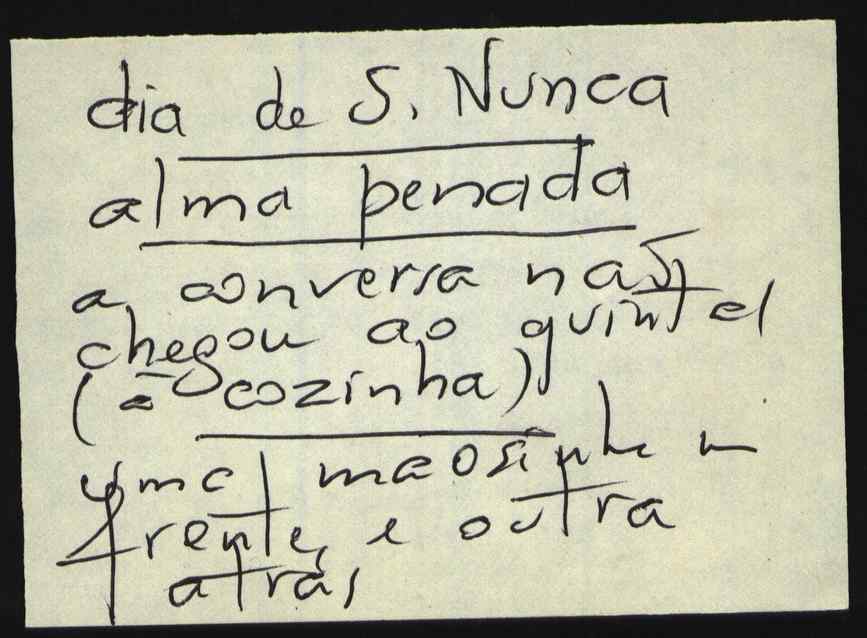 dia de S. Nunca
alma penada
a conversa não
chegou ao quintal
(à cozinha)
uma mãosinha na
frente, e outra
atrás